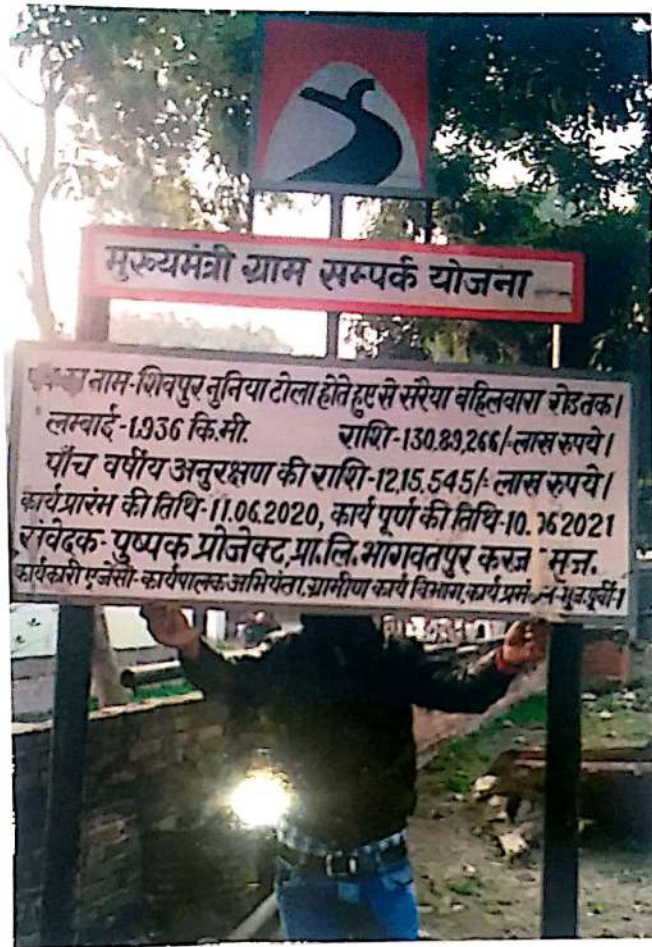 मुख्यमंत्री ग्राम सम्पर्क योजना
नाम-शिवपुर नुनिया टोला होते हुए से सरैया वहिलवारा रोड तक।
लम्बाई-1.936 कि.मी. राशि-130,89,266/-लाख रुपये।
पाँच वर्षीय अनुरक्षण की राशि-12,15,545/-लाख रुपये।
कार्य प्रारंभ की तिथि-11.06.2020, कार्य पूर्ण की तिथि-10. 062021
संवेदक- पुष्पक प्रोजेक्ट,प्रा.लि.भागवतपुर करजा मुज.
कार्यकारी एजेंसी-कार्यपालक अभियंता,ग्रामीण कार्य विभाग,कार्य मुज.पूर्वी-1